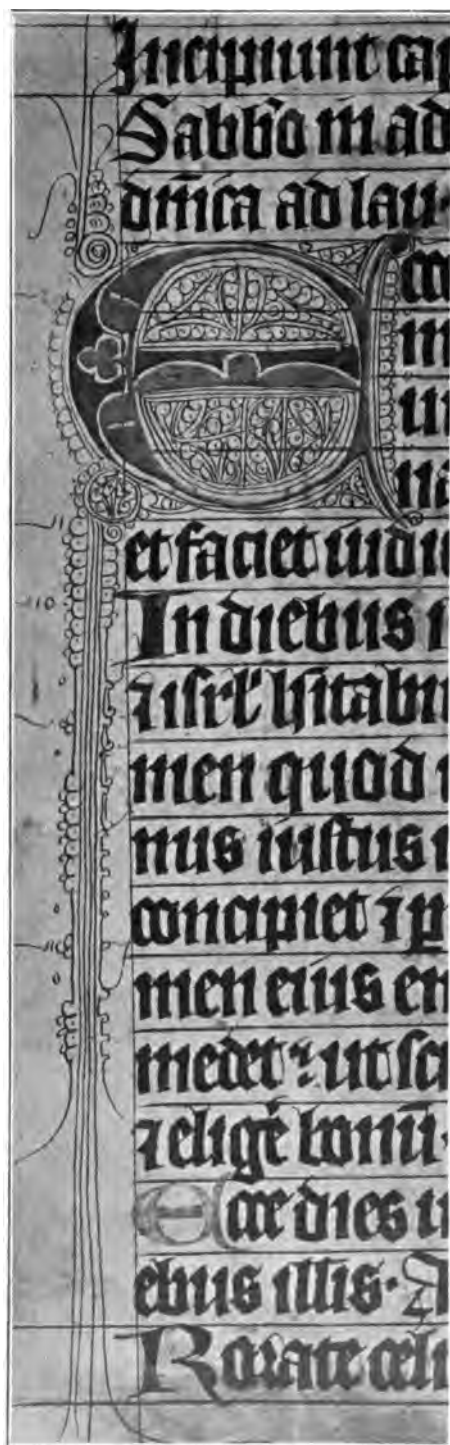 Incipiunt cap
Sabb̄o in ad
dn̄ica ad lau-
E cce
m
ui
na
et faciet iudi
In diebus i
⁊ isrl̄ h̄itabu
men quod
nus iustus i
concipiet ⁊ p̱
men eius em
medet ut sci
⁊ elige̅ bonū.
Ecce dies u
ebus illis. A
Rorate celi